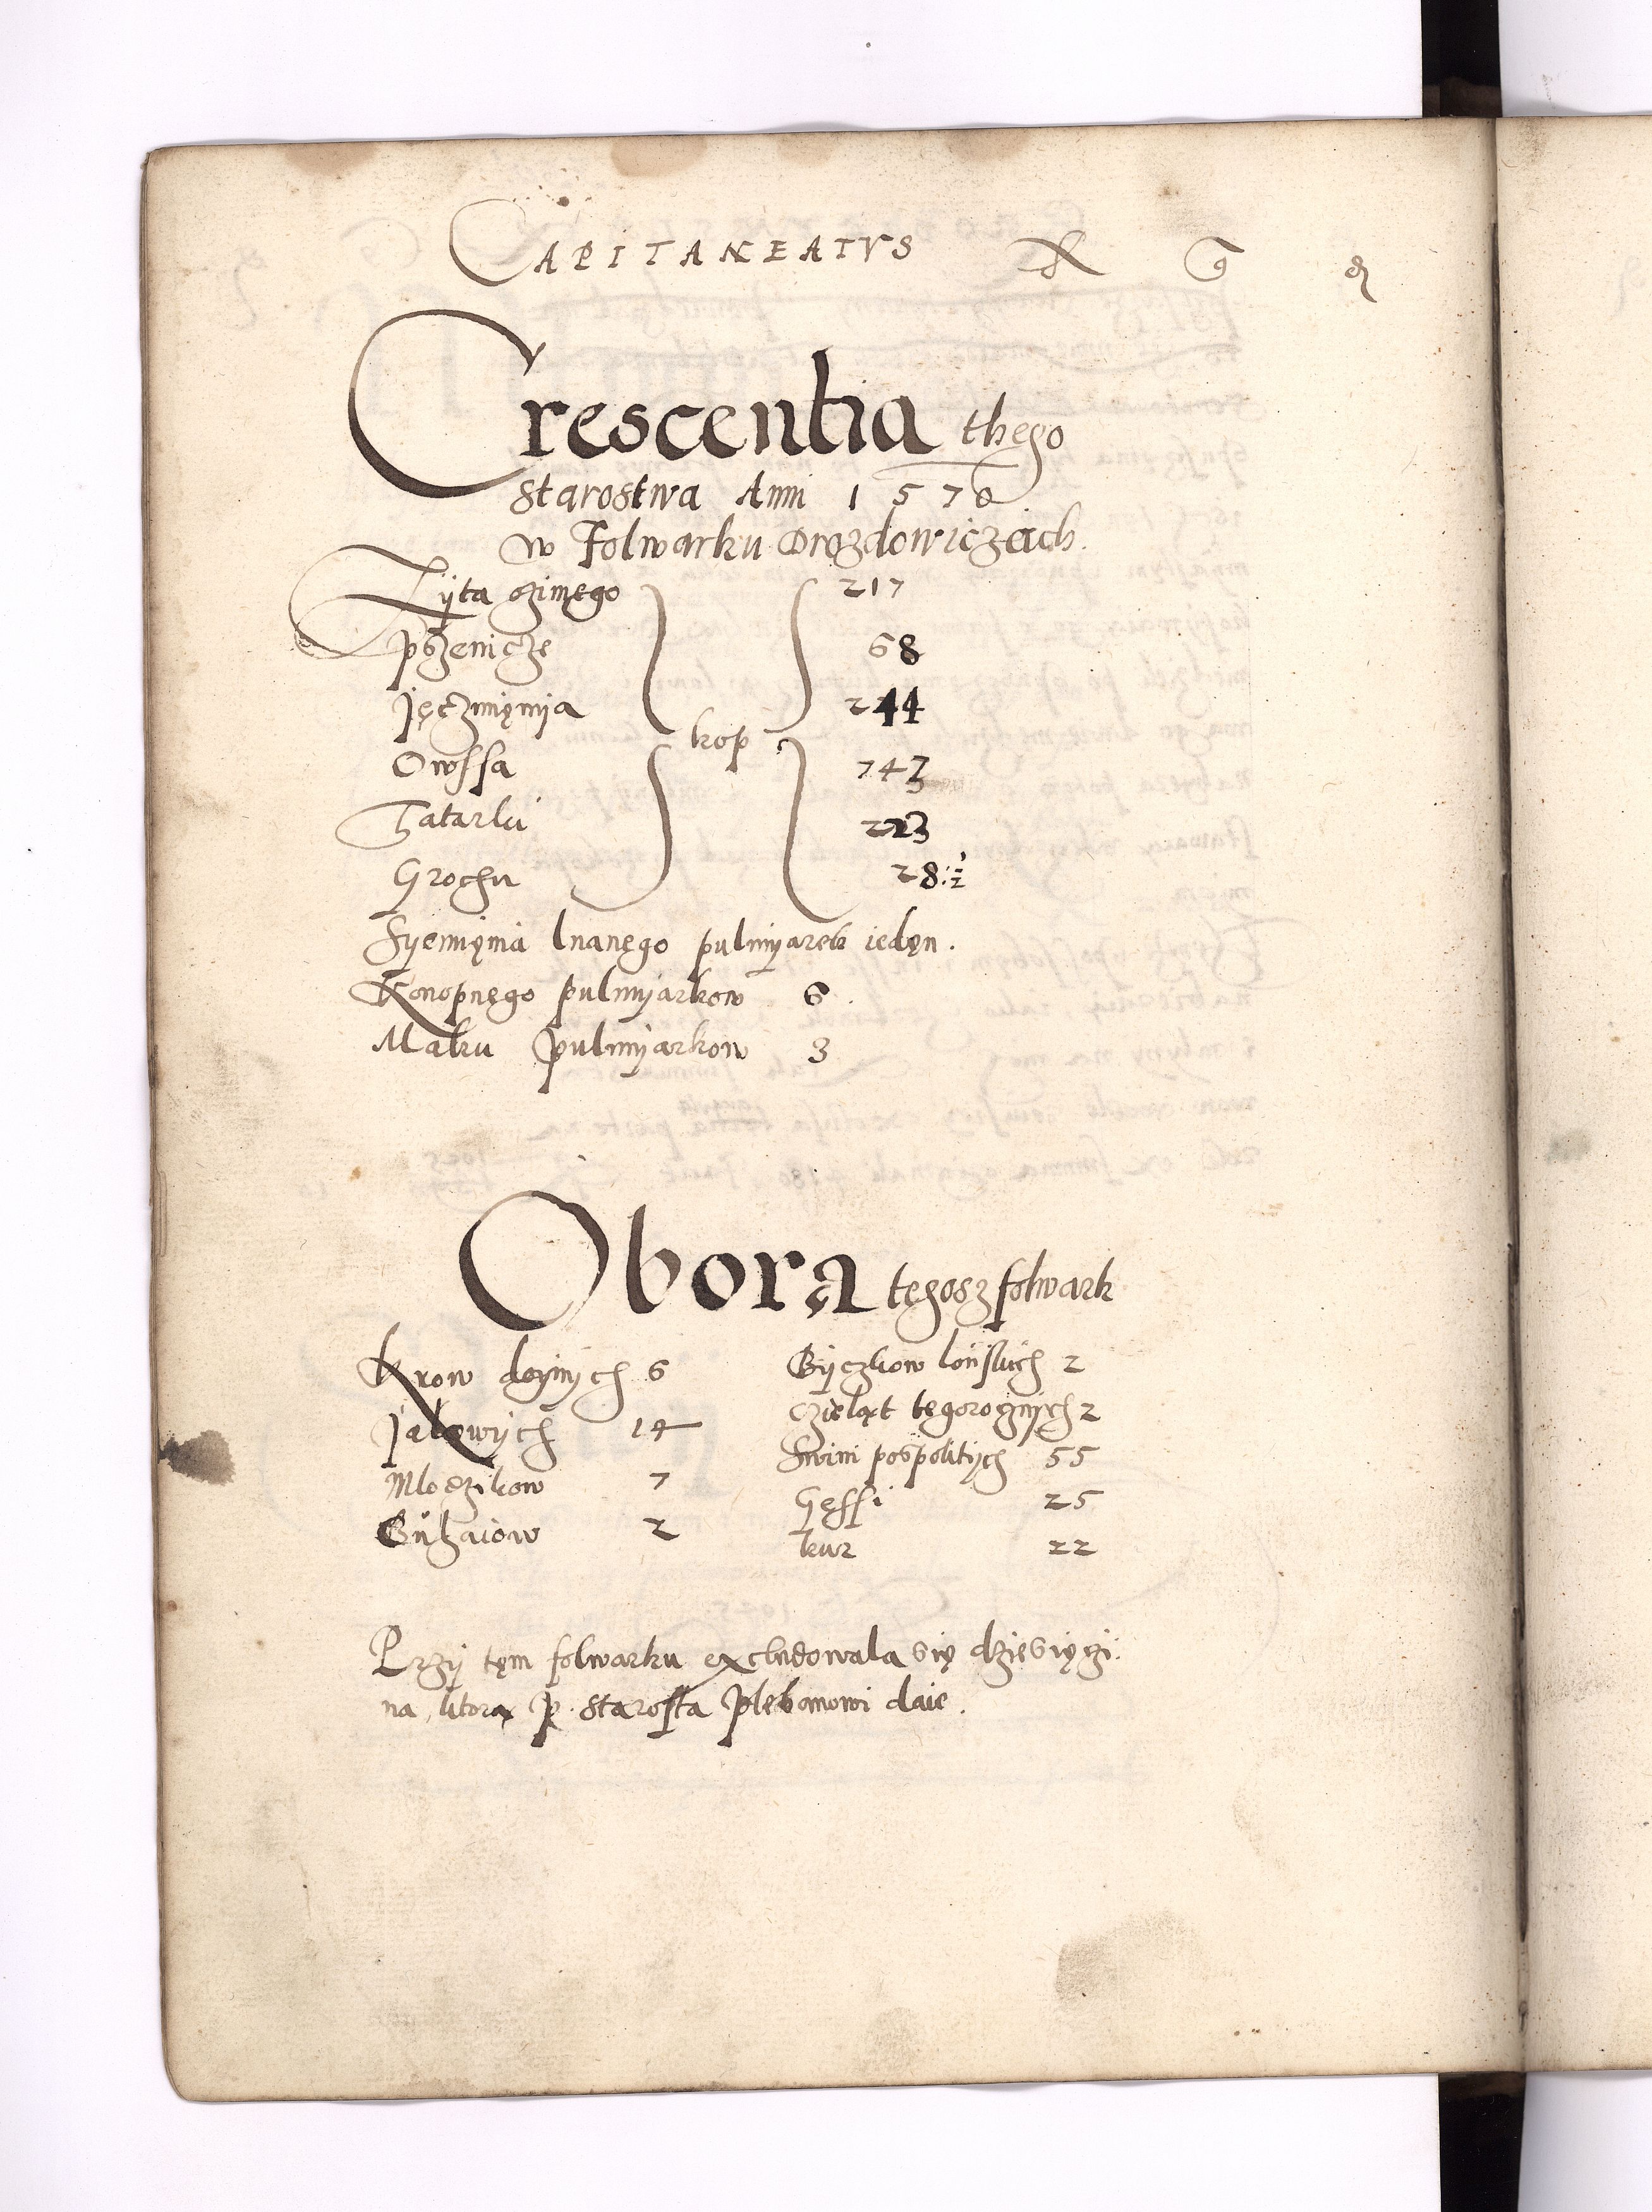 CAPITANEATVS
Crescentia thego
starostwa Anni 1570
w Folwarku Drozdowiczach.
Zÿta ozimęgo 217
pszenicze 68
Jęczmięnia 244
Owssa kop 743
Tatarki 223
Grochu 28 ½
Syemięnia lnanęgo pulmÿarek iedęn.
Konopnęgo pulmÿarkow 6.
Maku pulmÿarkow 3
Obora tęgosz folwark
Krow doÿnÿch 6
Jalowÿch 14
Mloczikow 7
Buhaiow 2
Bÿczkow lonskich 2
Czieląt tęgorocznÿch 2
Swini pospolitÿch 55
Gęssi 25
kur 22
Przÿ tęm folwarku excludowala się dziesięczi:
na, ktorą P. starosta Plebanowi daie.